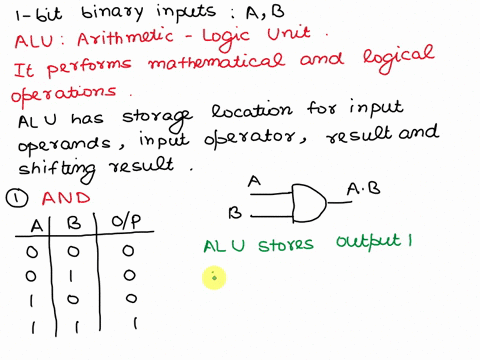 1-bit binary inputs : A, B
ALU : Arithmetic - Logic Unit .
It performs mathematical and logical
operations .
ALU has storage location for input
operands, input operator, result and
shifting result .
① AND
A B O/P
0 0 0
0 1 0
1 0 0
1 1 1
A
B
A·B
ALU stores output 1